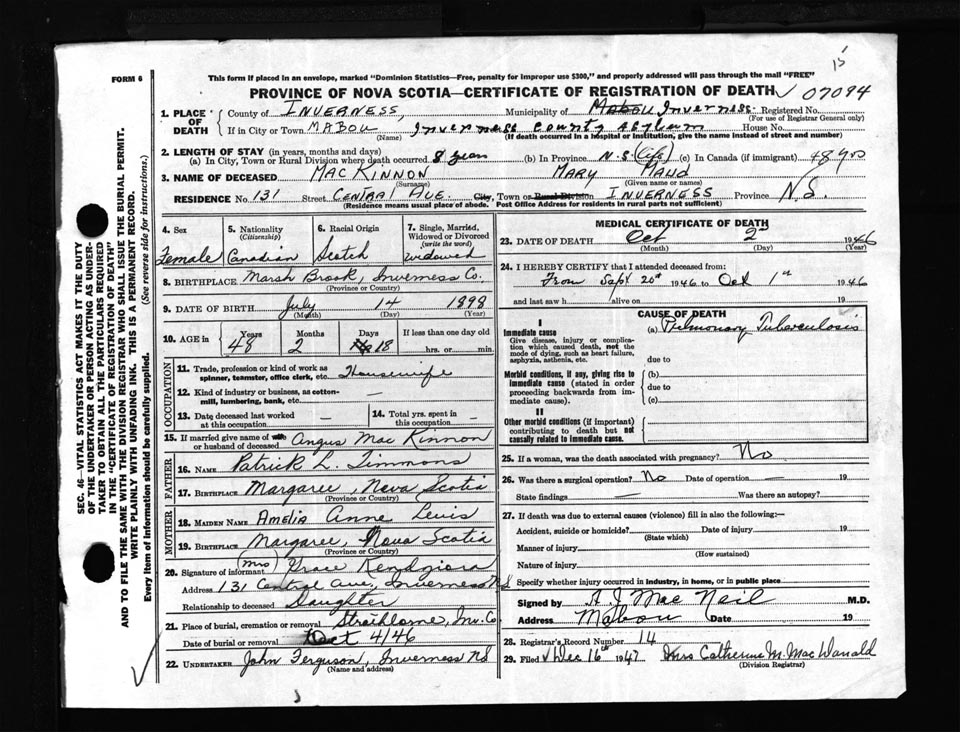 15
FORM 6
This form if placed in an envelope, marked "Dominion Statistics—Free, penalty for improper use $300," and properly addressed will pass through the mail "FREE"
PROVINCE OF NOVA SCOTIA—CERTIFICATE OF REGISTRATION OF DEATH 07094
1. PLACE OF DEATH County of INVERNESS, Municipality of Mabou Inverness. Registered No.
(For use of Registrar General only)
If in City or Town MABOU Inverness County Asylum House No.
(Name) (If death occurred in a hospital or institution, give the name instead of street and number)
2. LENGTH OF STAY (in years, months and days)
(a) In City, Town or Rural Division where death occurred 8 years (b) In Province N.S. (Life) (c) In Canada (if immigrant) 48 yrs
3. NAME OF DECEASED MAC KINNON MARY MAUD
(Surname) (Given name or names)
RESIDENCE No. 131 Street CENTRAL AVE City, Town or Rural Division INVERNESS Province N.S.
(Residence means usual place of abode. Post Office Address for residents in rural parts not sufficient)
4. Sex Female
5. Nationality (Citizenship) Canadian
6. Racial Origin Scotch
7. Single, Married, Widowed or Divorced (write the word) Widowed
8. BIRTHPLACE Marsh Brook, Inverness Co.
(Province or Country)
9. DATE OF BIRTH July 14 1898
(Month) (Day) (Year)
10. AGE in Years Months Days If less than one day old
48 2 18 hrs. or min.
OCCUPATION
11. Trade, profession or kind of work as spinner, teamster, office clerk, etc. Housewife
12. Kind of industry or business, as cotton-mill, lumbering, bank, etc. —
13. Date deceased last worked at this occupation —
14. Total yrs. spent in this occupation —
15. If married give name of wife or husband of deceased Angus Mac Kinnon
FATHER
16. NAME Patrick L. Timmons
17. BIRTHPLACE Margaree, Nova Scotia
(Province or Country)
MOTHER
18. MAIDEN NAME Amelia Anne Lewis
19. BIRTHPLACE Margaree, Nova Scotia
(Province or Country)
20. Signature of informant (Mrs) Grace
Address 131 Central Ave, Inverness N S
Relationship to deceased Daughter
21. Place of burial, cremation or removal Strathlorne, Inv. Co.
Date of burial or removal Oct 4/46
22. UNDERTAKER John Ferguson, Inverness NS
(Name and address)
MEDICAL CERTIFICATE OF DEATH
23. DATE OF DEATH Oct 2 1946
(Month) (Day)
24. I HEREBY CERTIFY that I attended deceased from:
From Sept 20th 1946 to Oct 1st 1946
and last saw h alive on 19
CAUSE OF DEATH
I
Immediate cause (a) Pulmonary Tuberculosis
Give disease, injury or complication which caused death, not the mode of dying, such as heart failure, asphyxia, asthenia, etc.
due to
Morbid conditions, if any, giving rise to immediate cause (stated in order proceeding backwards from immediate cause). (b)
due to
(c)
II
Other morbid conditions (if important) contributing to death but not causally related to immediate cause.
25. If a woman, was the death associated with pregnancy? No
26. Was there a surgical operation? No Date of operation — 19
State findings — Was there an autopsy?
27. If death was due to external causes (violence) fill in also the following:—
Accident, suicide or homicide? Date of injury 19
(State which)
Manner of injury
(How sustained)
Nature of injury
Specify whether injury occurred in industry, in home, or in public place
Signed by A. J. Mac Neil M.D.
Address Mabou Date 19
28. Registrar's Record Number 14
29. Filed Dec 16th 1947 Mrs Catherine M. Mac Donald
(Division Registrar)
SEC. 46—VITAL STATISTICS ACT MAKES IT THE DUTY
OF THE UNDERTAKER OR PERSON ACTING AS UNDER-
TAKER TO OBTAIN ALL THE PARTICULARS REQUIRED
IN THE "CERTIFICATE OF REGISTRATION OF DEATH"
AND TO FILE THE SAME WITH THE DIVISION REGISTRAR WHO SHALL ISSUE THE BURIAL PERMIT.
WRITE PLAINLY WITH UNFADING INK. THIS IS A PERMANENT RECORD.
Every item of information should be carefully supplied. (See reverse side for instructions.)